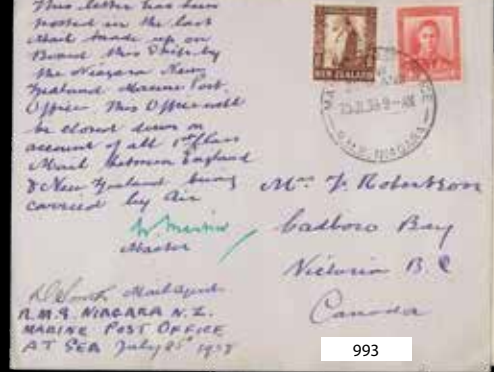 This letter has been
posted in the last
Mail made up on
Board this Ship by
the Niagara New
Zealand Marine Post
Office This Office will
be closed down on
account of all 1st class
Mail between England
& New Zealand being
carried by Air
Master
Mail agent
R.M.S. NIAGARA N.Z.
MARINE POST OFFICE
AT SEA July 25th 1938
NEW ZEALAND
R.M.S. NIAGARA
Mrs. F. Robertson
Cadboro Bay
Victoria B C
Canada
993